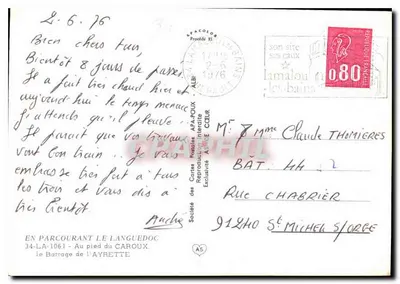 2-6-76
Bien chers tous,
Bientôt 8 jours de passés
Il a fait très chaud hier et
aujourd'hui le temps menace
j'attends qu'il pleuve.
Il parait que vos travaux
vont bon train.. Je vous
embrasse très fort à tous
les trois et vous dis à
très bientôt
EN PARCOURANT LE LANGUEDOC
34-LA-1061 - Au pied du CAROUX
le Barrage de l'AYRETTE
APA-POUX
Société des Cartes Postales APA-POUX - ALBI
Reproduction interdite
Exclusivité A. CŒUR
AS
1976
lamalou
les-bains
0,80
Mr & Mme Claude THOMIERES
BÂT. HH 2
RUE CHABRIER
91240 St MICHEL S/ORGE